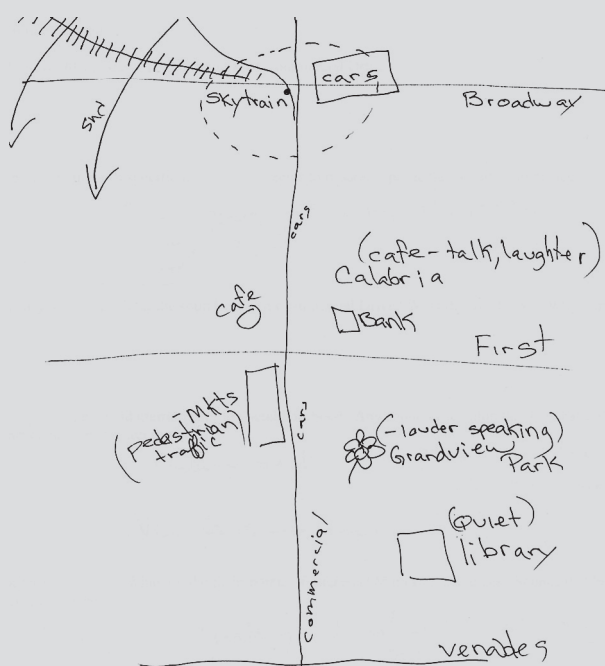 cars
skytrain
Broadway
cars
(cafe-talk, laughter)
Calabria
cafe
Bank
First
-Mkts
(pedestrian
traffic)
cars
(-louder speaking)
Grandview
Park
(Quiet)
library
Commercial
venables